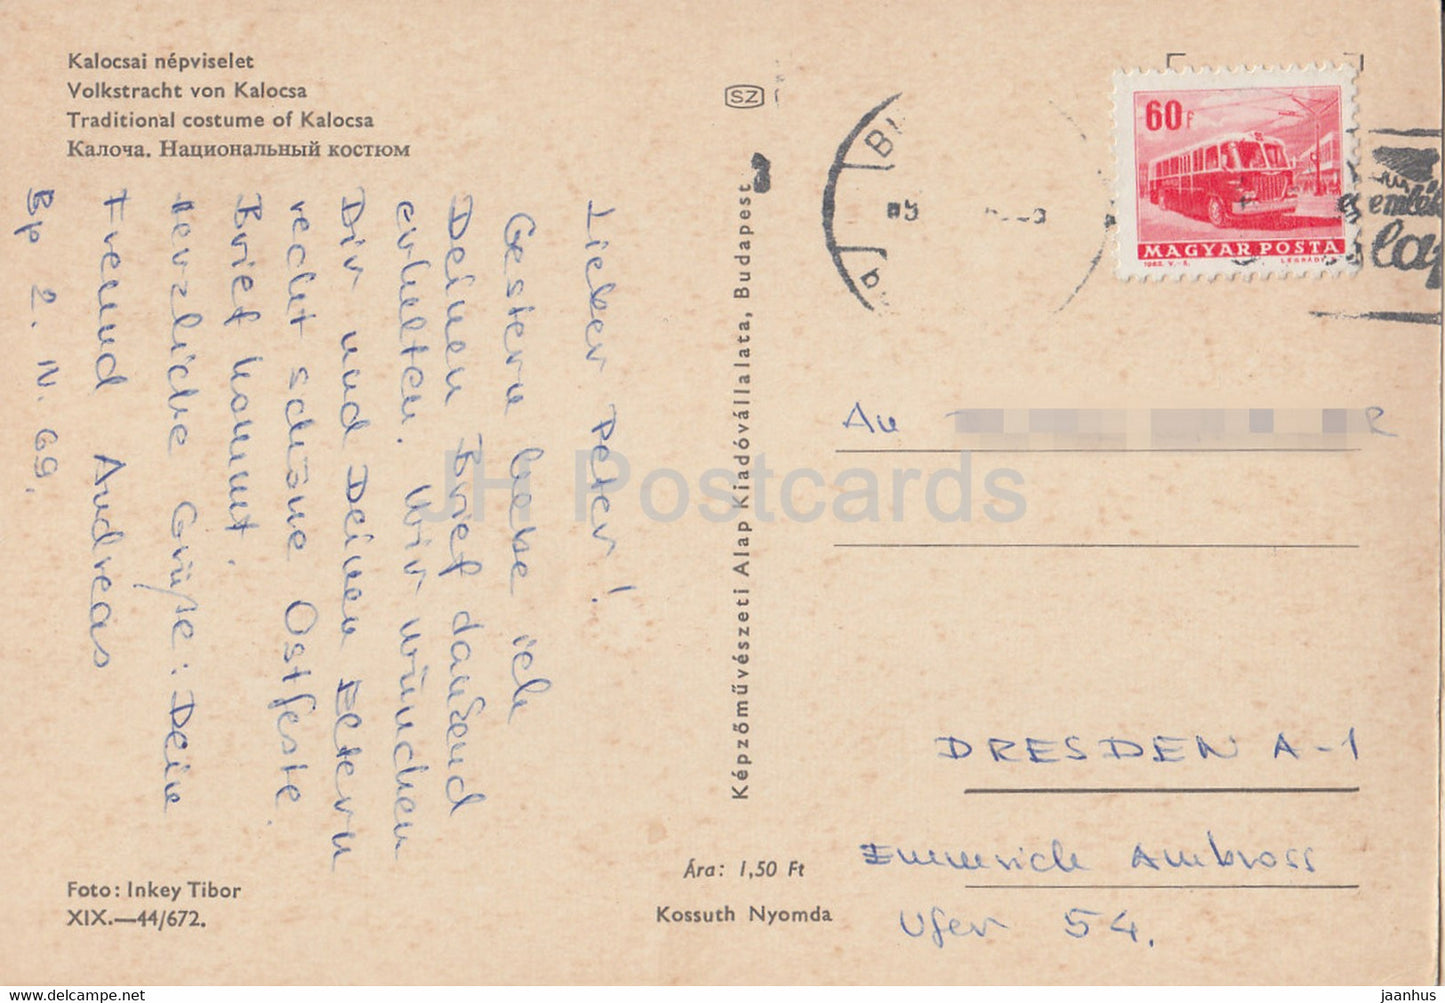 Kalocsai népviselet
Volkstracht von Kalocsa
Traditional costume of Kalocsa
Калоча. Национальный костюм
SZ
60f
MAGYAR POSTA
Lieber Peter!
Gestern habe ich
Deinen Brief dankend
erhalten. Wir wünchen
Dir und Deinen Eltern
recht schöne Ostfeste.
Brief kommt.
Herzliche Grüße: Dein
Freund Andreas
Bp 2. IV. 69.
Képzőművészeti Alap Kiadóvállalata, Budapest
An
DRESDEN A-1
Emmrich Ambross
Ufer 54.
Ára: 1,50 Ft
Kossuth Nyomda
Foto: Inkey Tibor
XIX.—44/672.
JH Postcards
www.delcampe.net
jaanhus